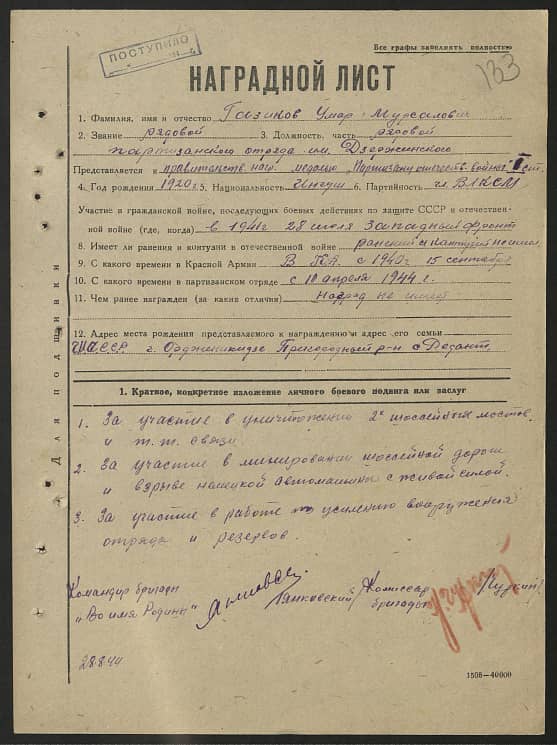 ПОСТУПИЛО
Все графы заполнять полностью
133
НАГРАДНОЙ ЛИСТ
1. Фамилия, имя и отчество Гоизиков Умар Мурсалович
2. Звание рядовой 3. Должность, часть рядовой
партизанского отряда им. Дзержинского
Представляется к правительств. наг. медалью Партизану отечеств. войны I ст.
4. Год рождения 1920 г. 5. Национальность Ингуш 6. Партийность чл. ВЛКСМ
Участие в гражданской войне, последующих боевых действиях по защите СССР и отечествен-
ной войне (где, когда) в 1941г 28 июля Западный фронт
8. Имеет ли ранения и контузии в отечественной войне ранений и контузий не имел
9. С какого времени в Красной Армии В КА с 1940 г 15 сентября
10. С какого времени в партизанском отряде с 10 апреля 1944 г.
11. Чем ранее награжден (за какие отличия) Наград не имеет
12. Адрес места рождения представляемого к награждению и адрес его семьи
ЧИАССР г. Орджоникидзе Пригородный р-н с
Для подшивки
1. Краткое, конкретное изложение личного боевого подвига или заслуг
1. За участие в уничтожении 2х шоссейных мостов
и т.т. связи.
2. За участие в минировании шоссейной дороги
и взрыве немецкой автомашины с живой силой.
3. За участие в работе по усилению вооружения
отряда и резервов.
Командир бригады
"Во имя Родины"
Комиссар
бригады
28.8.44
1508—40000